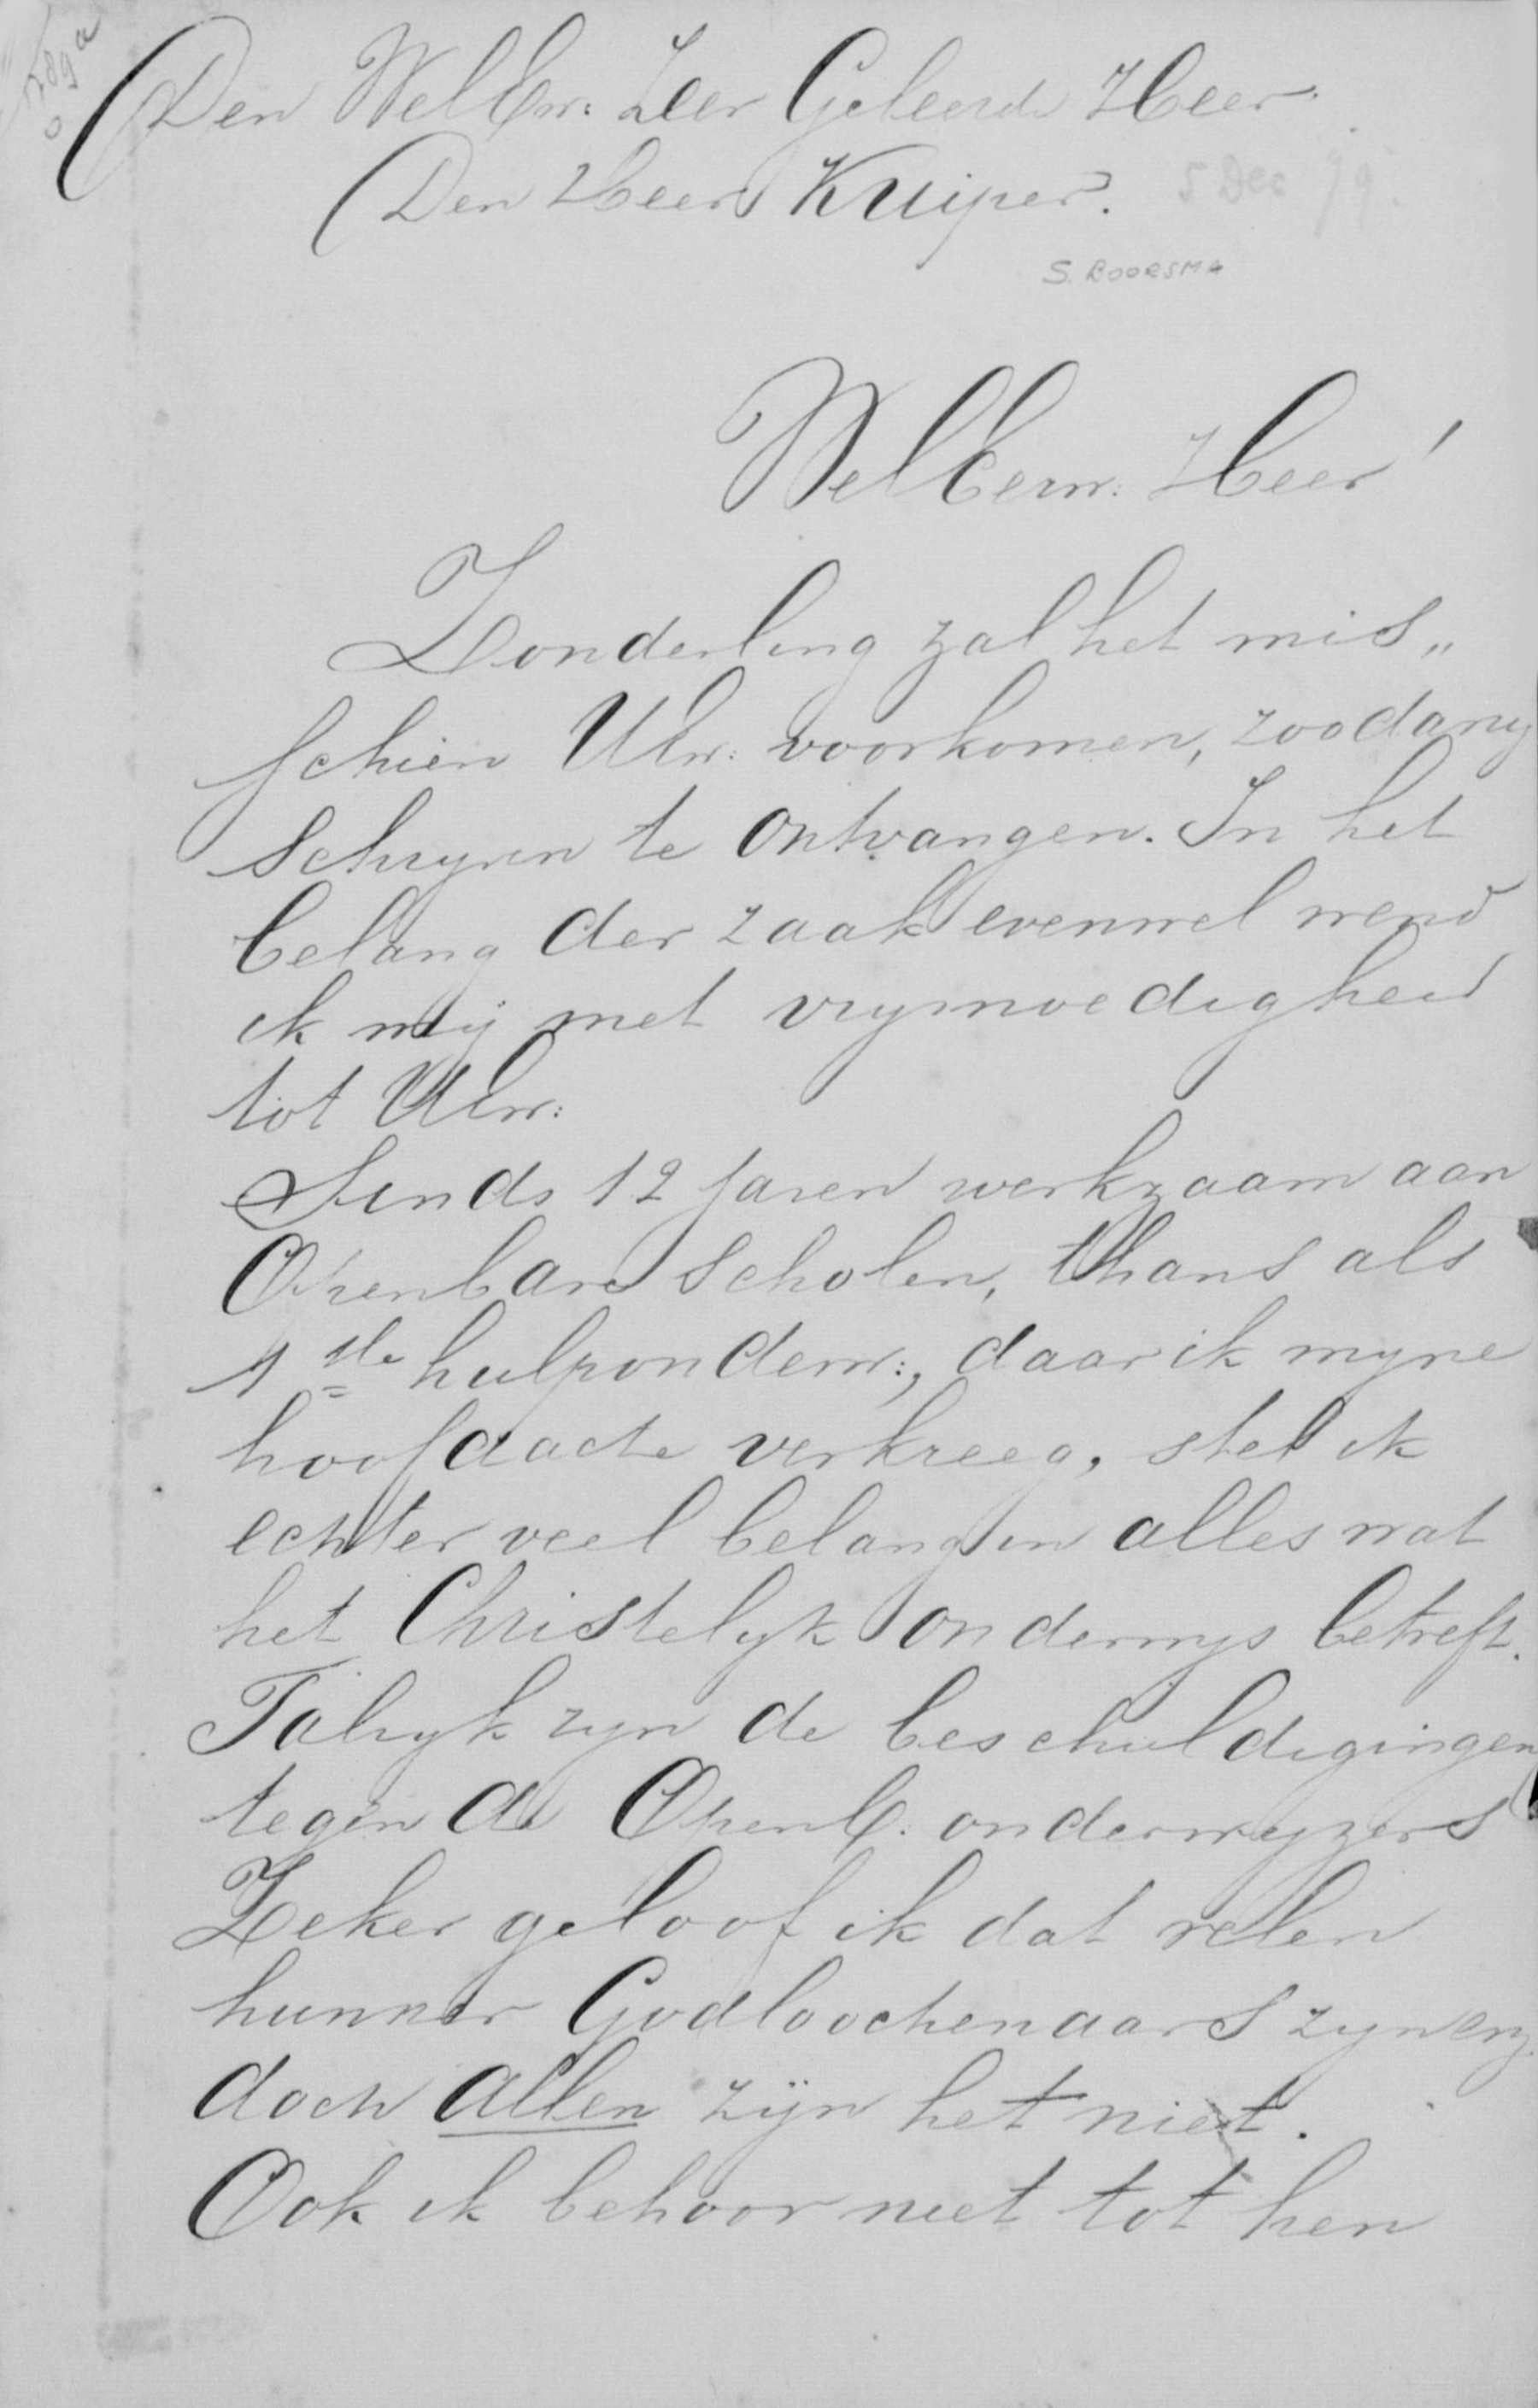 Den WelEw: Zeer Geleerde Heer
Den Heer Kuiper.
5 Dec 79.
S. BOORSMA
WelEerw: Heer!
Zonderling zal het mis„
schien UEw: voorkomen, zoodanig
schryven te ontvangen. In het
belang der zaak evenwel wend
ik mij met vrymoedigheid
tot UEw:
Sinds 12 jaren werkzaam aan
Openbare scholen, thans als
1ste hulponderw:, daar ik myne
hoofdacte verkreeg, stel ik
echter veel belang in alles wat
het Christelyk onderwys betreft.
Talryk zyn de beschuldigingen
tegen de Openb. onderwyzers
Zeker geloof ik dat velen
hunner Godloochenaars zyn enz.
doch allen zijn het niet.
Ook ik behoor niet tot hen